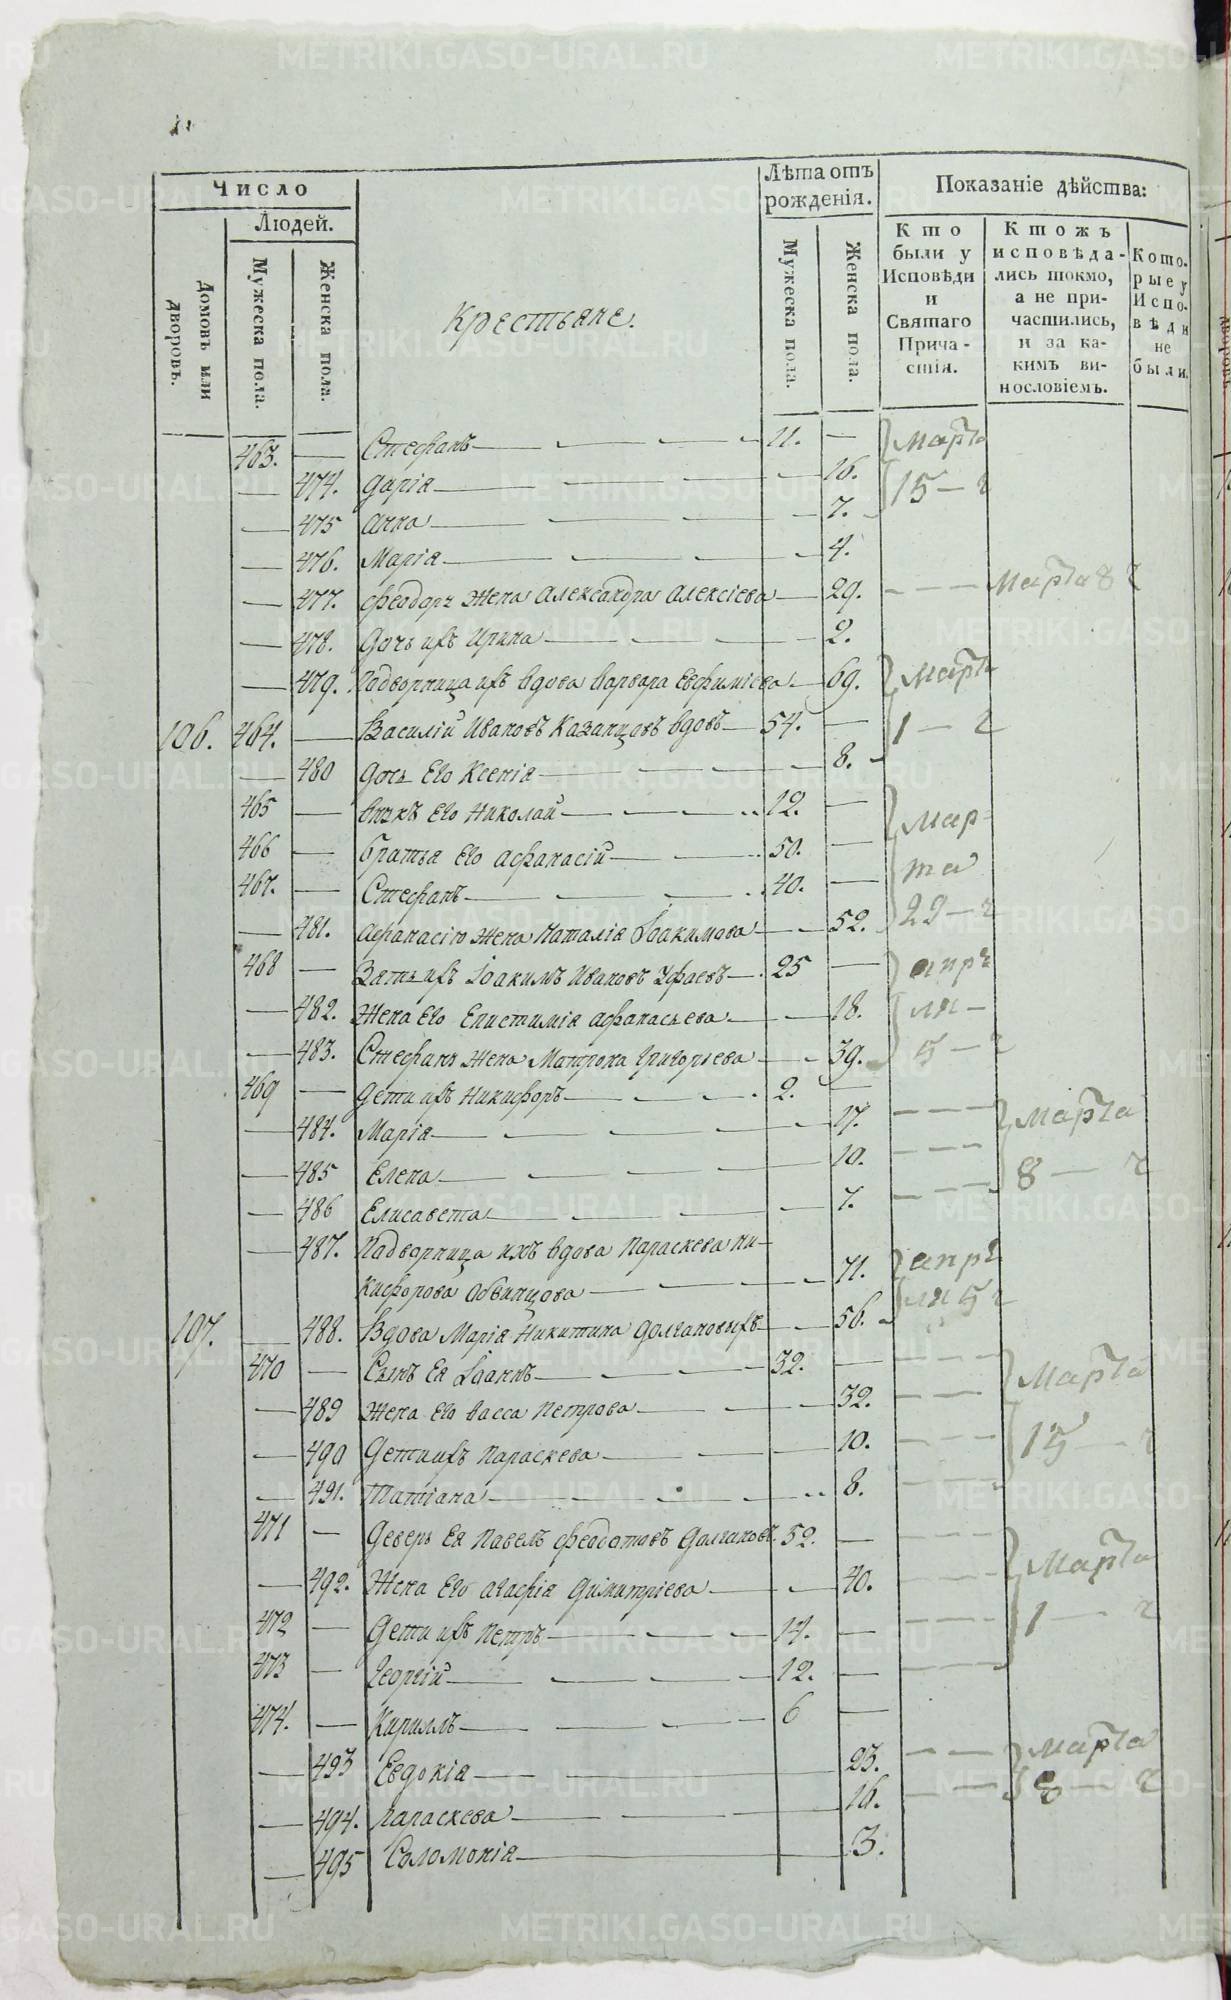 Число
Людей.
Домовъ или дворовъ.
Мужеска пола.
Женска пола.
Крестьяне.
Лѣта отъ рожденія.
Мужеска пола.
Женска пола.
Показаніе дѣйства:
Кто были у Исповѣди и Святаго Прича-стія.
Ктожъ исповѣда-лись токмо, а не при-частились, и за ка-кимъ ви-нословіемъ.
Кото-рые у Испо-вѣди не были.
463. — Стефанъ 11. — Марта
— 474. Дарія — 16. 15 — г
— 475 Анна — 7.
— 476. Марія — 4.
— 477. Феодоръ жена Александра Алексіева — 29. Марта 8 г
— 478. Дочь ихъ Ирина — 2.
— 479. Падворница ихъ вдова Варвара Евфиміева — 69. Марта
106. 464. — Василій Ивановъ Казанцовъ вдовъ 54. — 1 — г
— 480 Дочь Его Ксенія — 8.
465 — внукъ Его Николай 12. — Мар-
466 — братья Его Афанасій 50. — та
467. — Стефанъ 40. —
— 481. Афанасію жена Наталія Іоакимова — 52. 22 — г
468 — Зять ихъ Іоакимъ Ивановъ Уфаевъ 25 — апрѣ
— 482. Жена Его Епистимія Афанасьева — 18. ля —
— 483. Стефанъ жена Матрона Григорьева — 39. 5 — г
469 — Дети ихъ Никифоръ 2. —
— 484. Марія — 17. Марта
— 485 Елена — 10. 8 — г
— 486 Елисавета — 7.
— 487. Падворница ихъ вдова Параскева Ни-
кифорова Обвинцова — 71. апрѣ
107. — 488. Вдова Марія Никитина Долгановыхъ — 56. ля 5 г
470 — Сынъ Ея Іоаннъ 32. — Марта
— 489 Жена Его Васса Петрова — 32.
— 490 Дети ихъ Параскева — 10. 15 — г
— 491. Татіана — 8.
471 — Деверь Ея Павелъ Феодотовъ Долгановъ 52. — Марта
— 492. Жена Его Агафія Димитріева — 40.
472 — Дети ихъ Петръ 14. — 1 — г
473 — Георгій 12. —
474. — Кириллъ 6 —
— 493 Евдокія — 23. Марта
— 494. Параскева — 16. 8 — г
— 495 Соломонія — 3.
METRIKI.GASO-URAL.RU